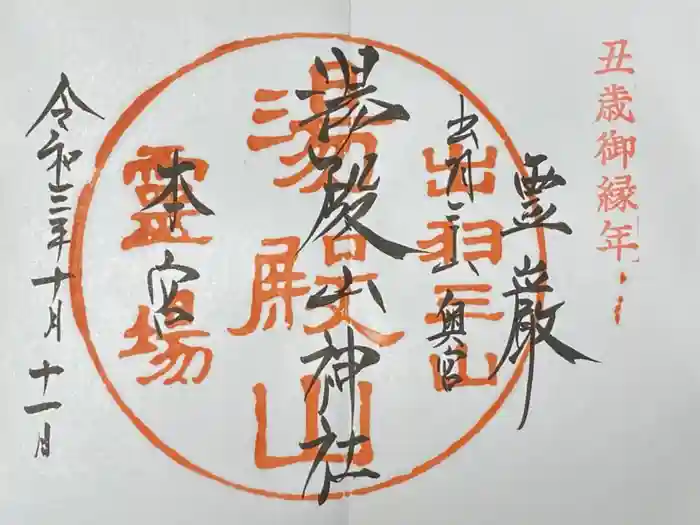 丑歳御縁年
霊巌
出羽三山奥宮
出羽三山
湯殿山神社
湯殿山
本宮
霊場
令和三年十月十一日